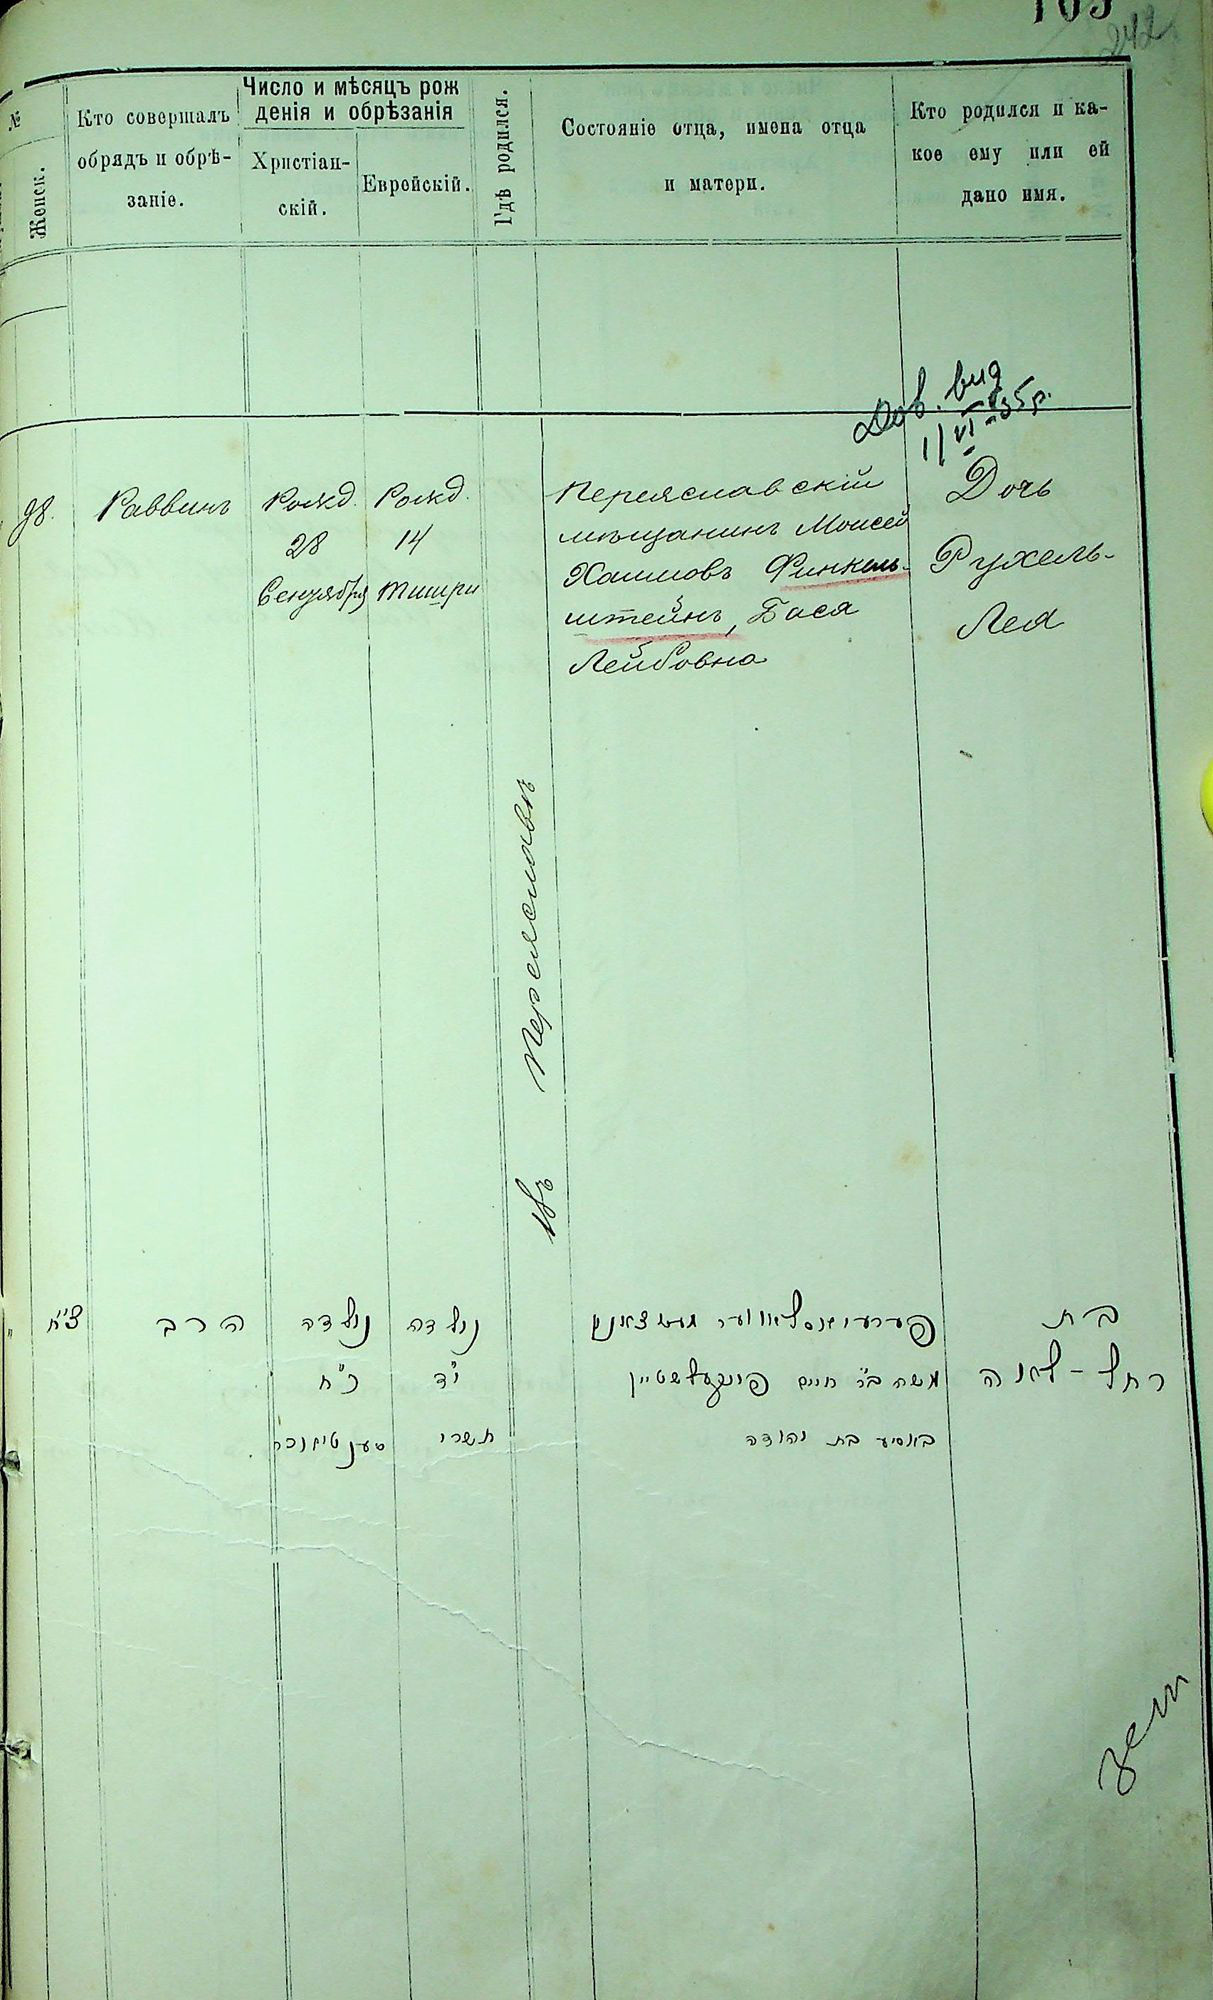 105
242
№
Женск.
Кто совершалъ
обрядъ и обрѣ-
заніе.
Число и мѣсяцъ рож
денія и обрѣзанія
Христіан-
скій.
Еврейскій.
Гдѣ родился.
Состояніе отца, имена отца
и матери.
Кто родился и ка-
кое ему или ей
дано имя.
Дов. вид
1/VI-35р.
98.
Раввинъ
Рожд.
28
Сентября
Рожд.
14
Тишри
Въ Переяславѣ
Переяславскій
мѣщанинъ Моисей
Хаимовъ Финкель-
штейнъ, Бася
Лейбовна
Дочь
Рухель-
Лея
צ״ח
הרב
נולדה
כ״ח
סענטיאברי
נולדה
י״ד
תשרי
פערעיאסלאווער מעשצאנין
משה ב״ר חיים פינקעלשטיין
באסיע בת יהודה
בת
רחל-לאה